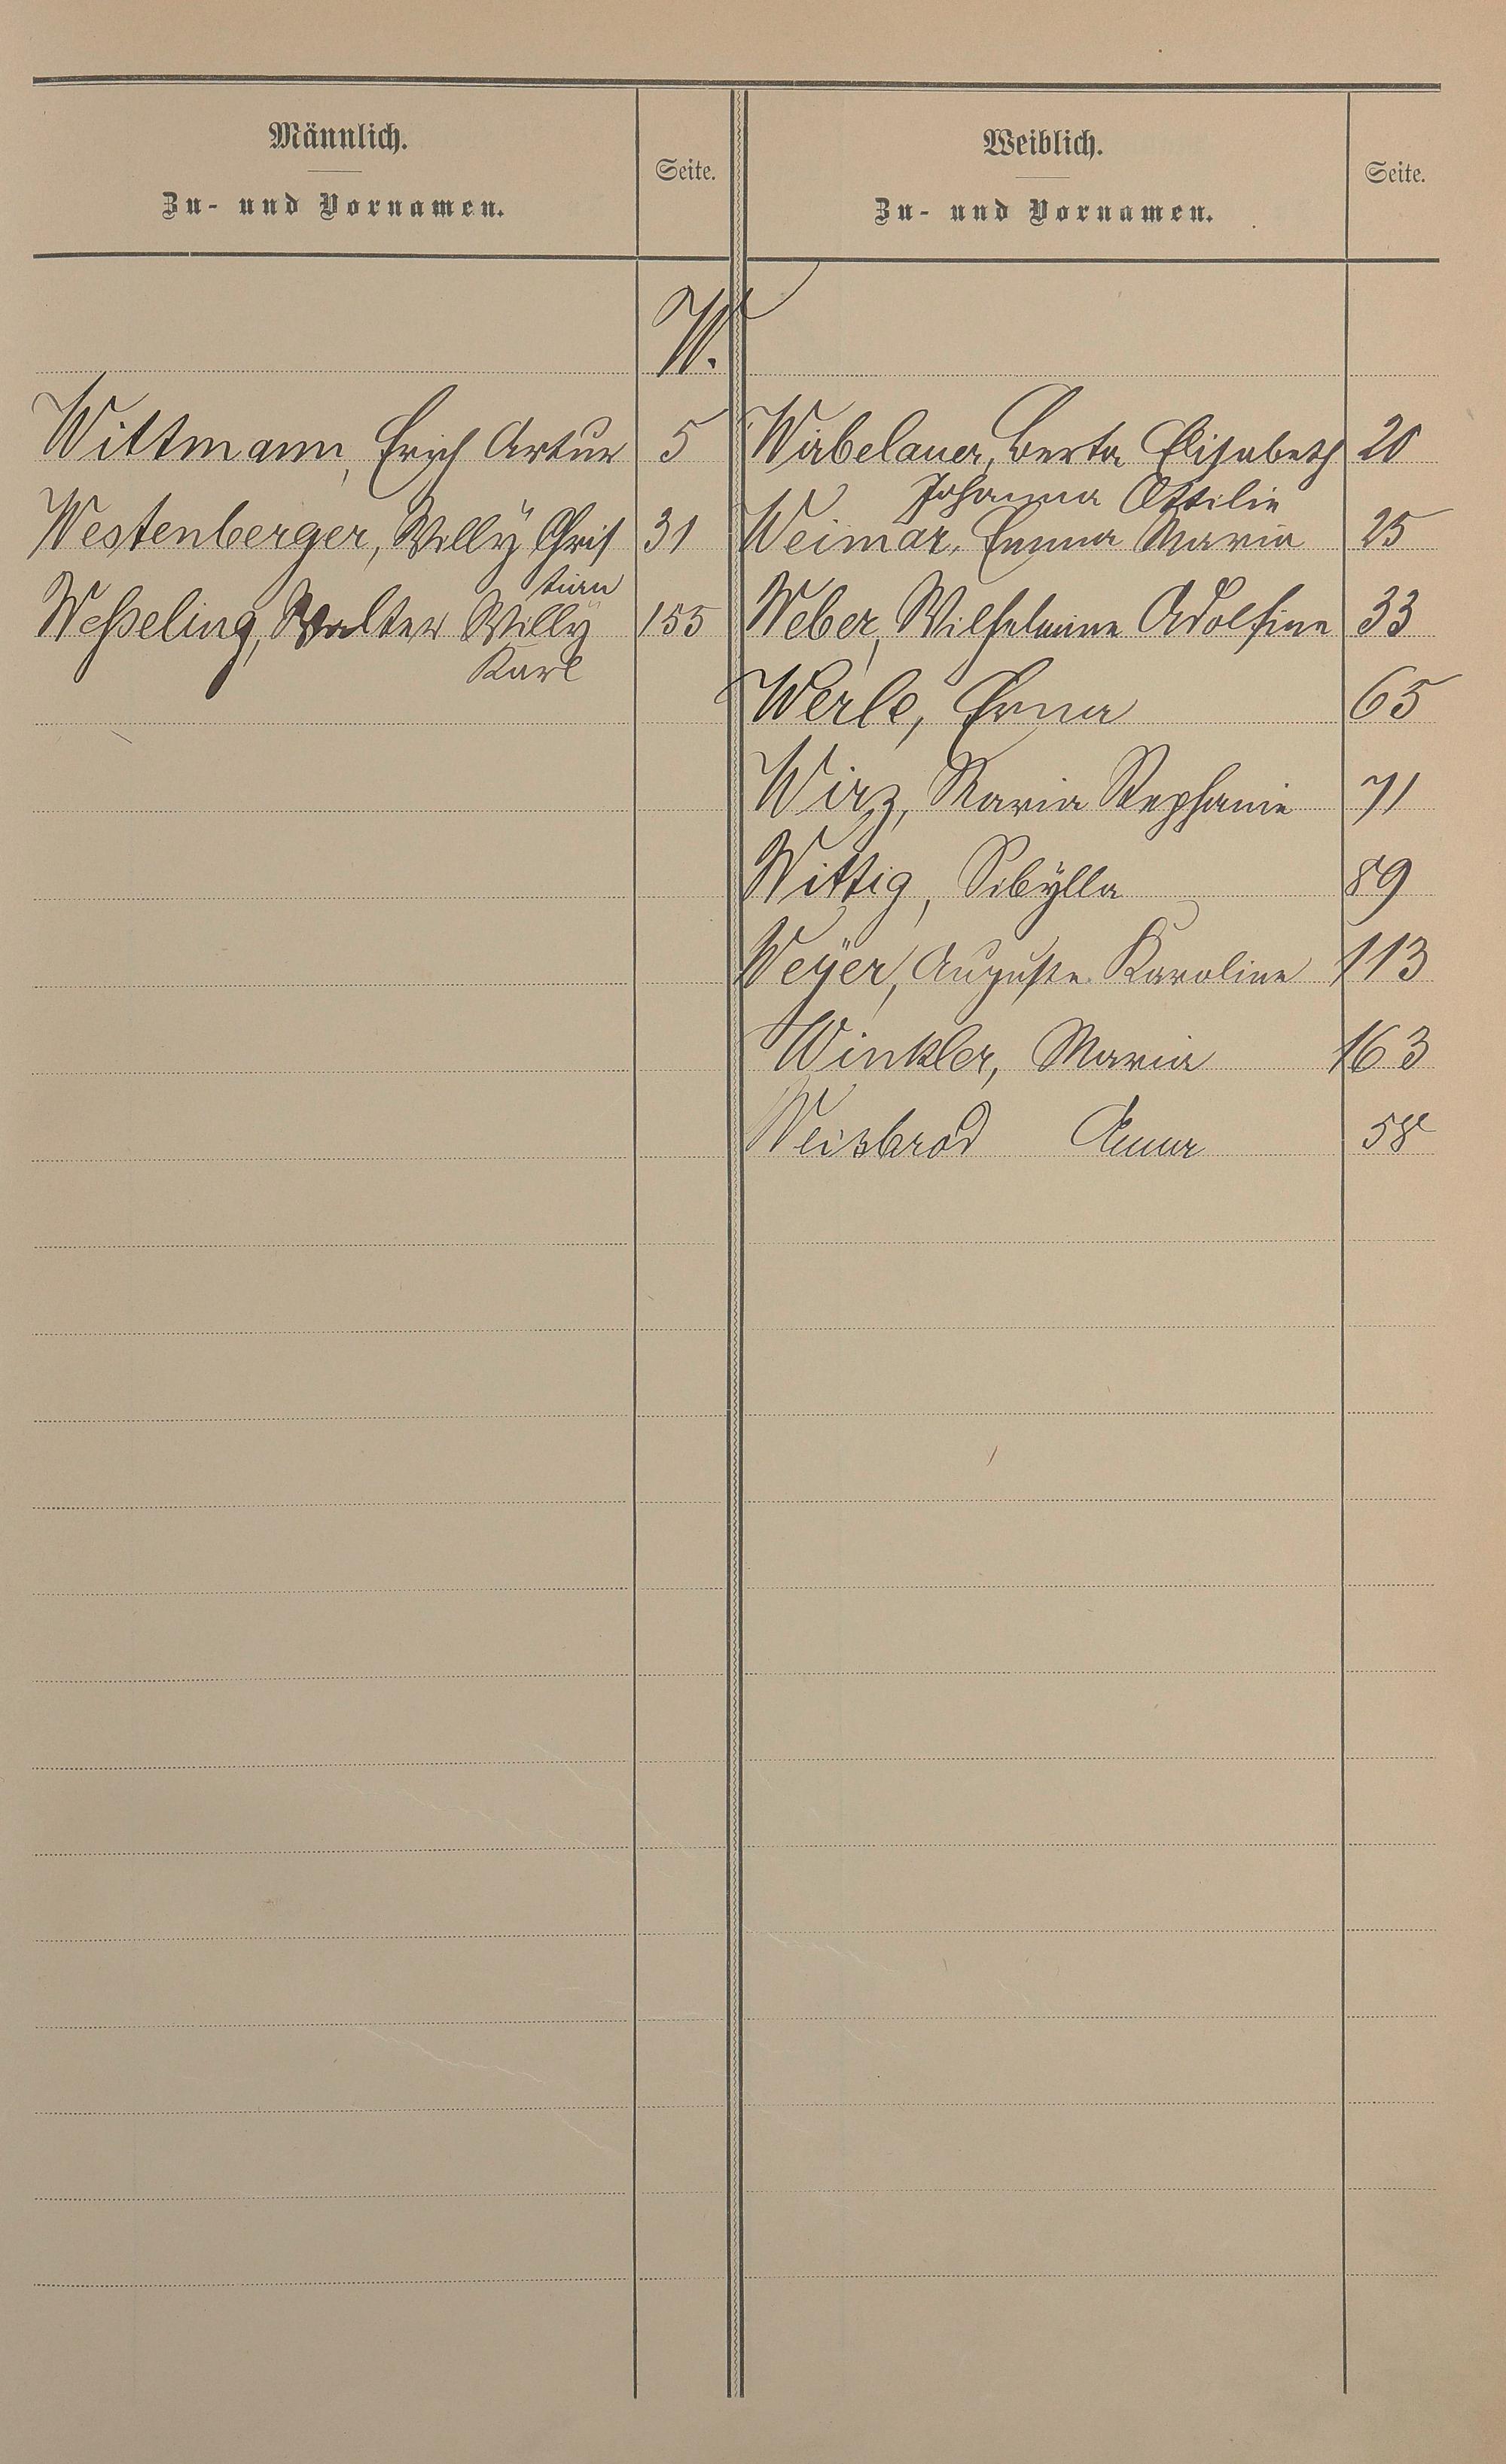 Männlich.
Zu- und Vornamen.
Seite.
Weiblich.
Zu- und Vornamen.
Seite.
W.
Wittmann, Erich Artur 5
Westenberger, Willÿ Chris 31
tian
Weßeling, Walter Willÿ 155
Karl
Wirbelauer, Berta Elisabeth 20
Johanna Ottilie
Weimar, Emma Maria 25
Weber, Wilhelmine Adolfine 33
Werle, Erna 65
Wirz, Maria Stephanie 71
Wittig, Sibÿlla 89
Weÿer, Auguste Karoline 113
Winkler, Maria 163
Weisbrod Anna 58